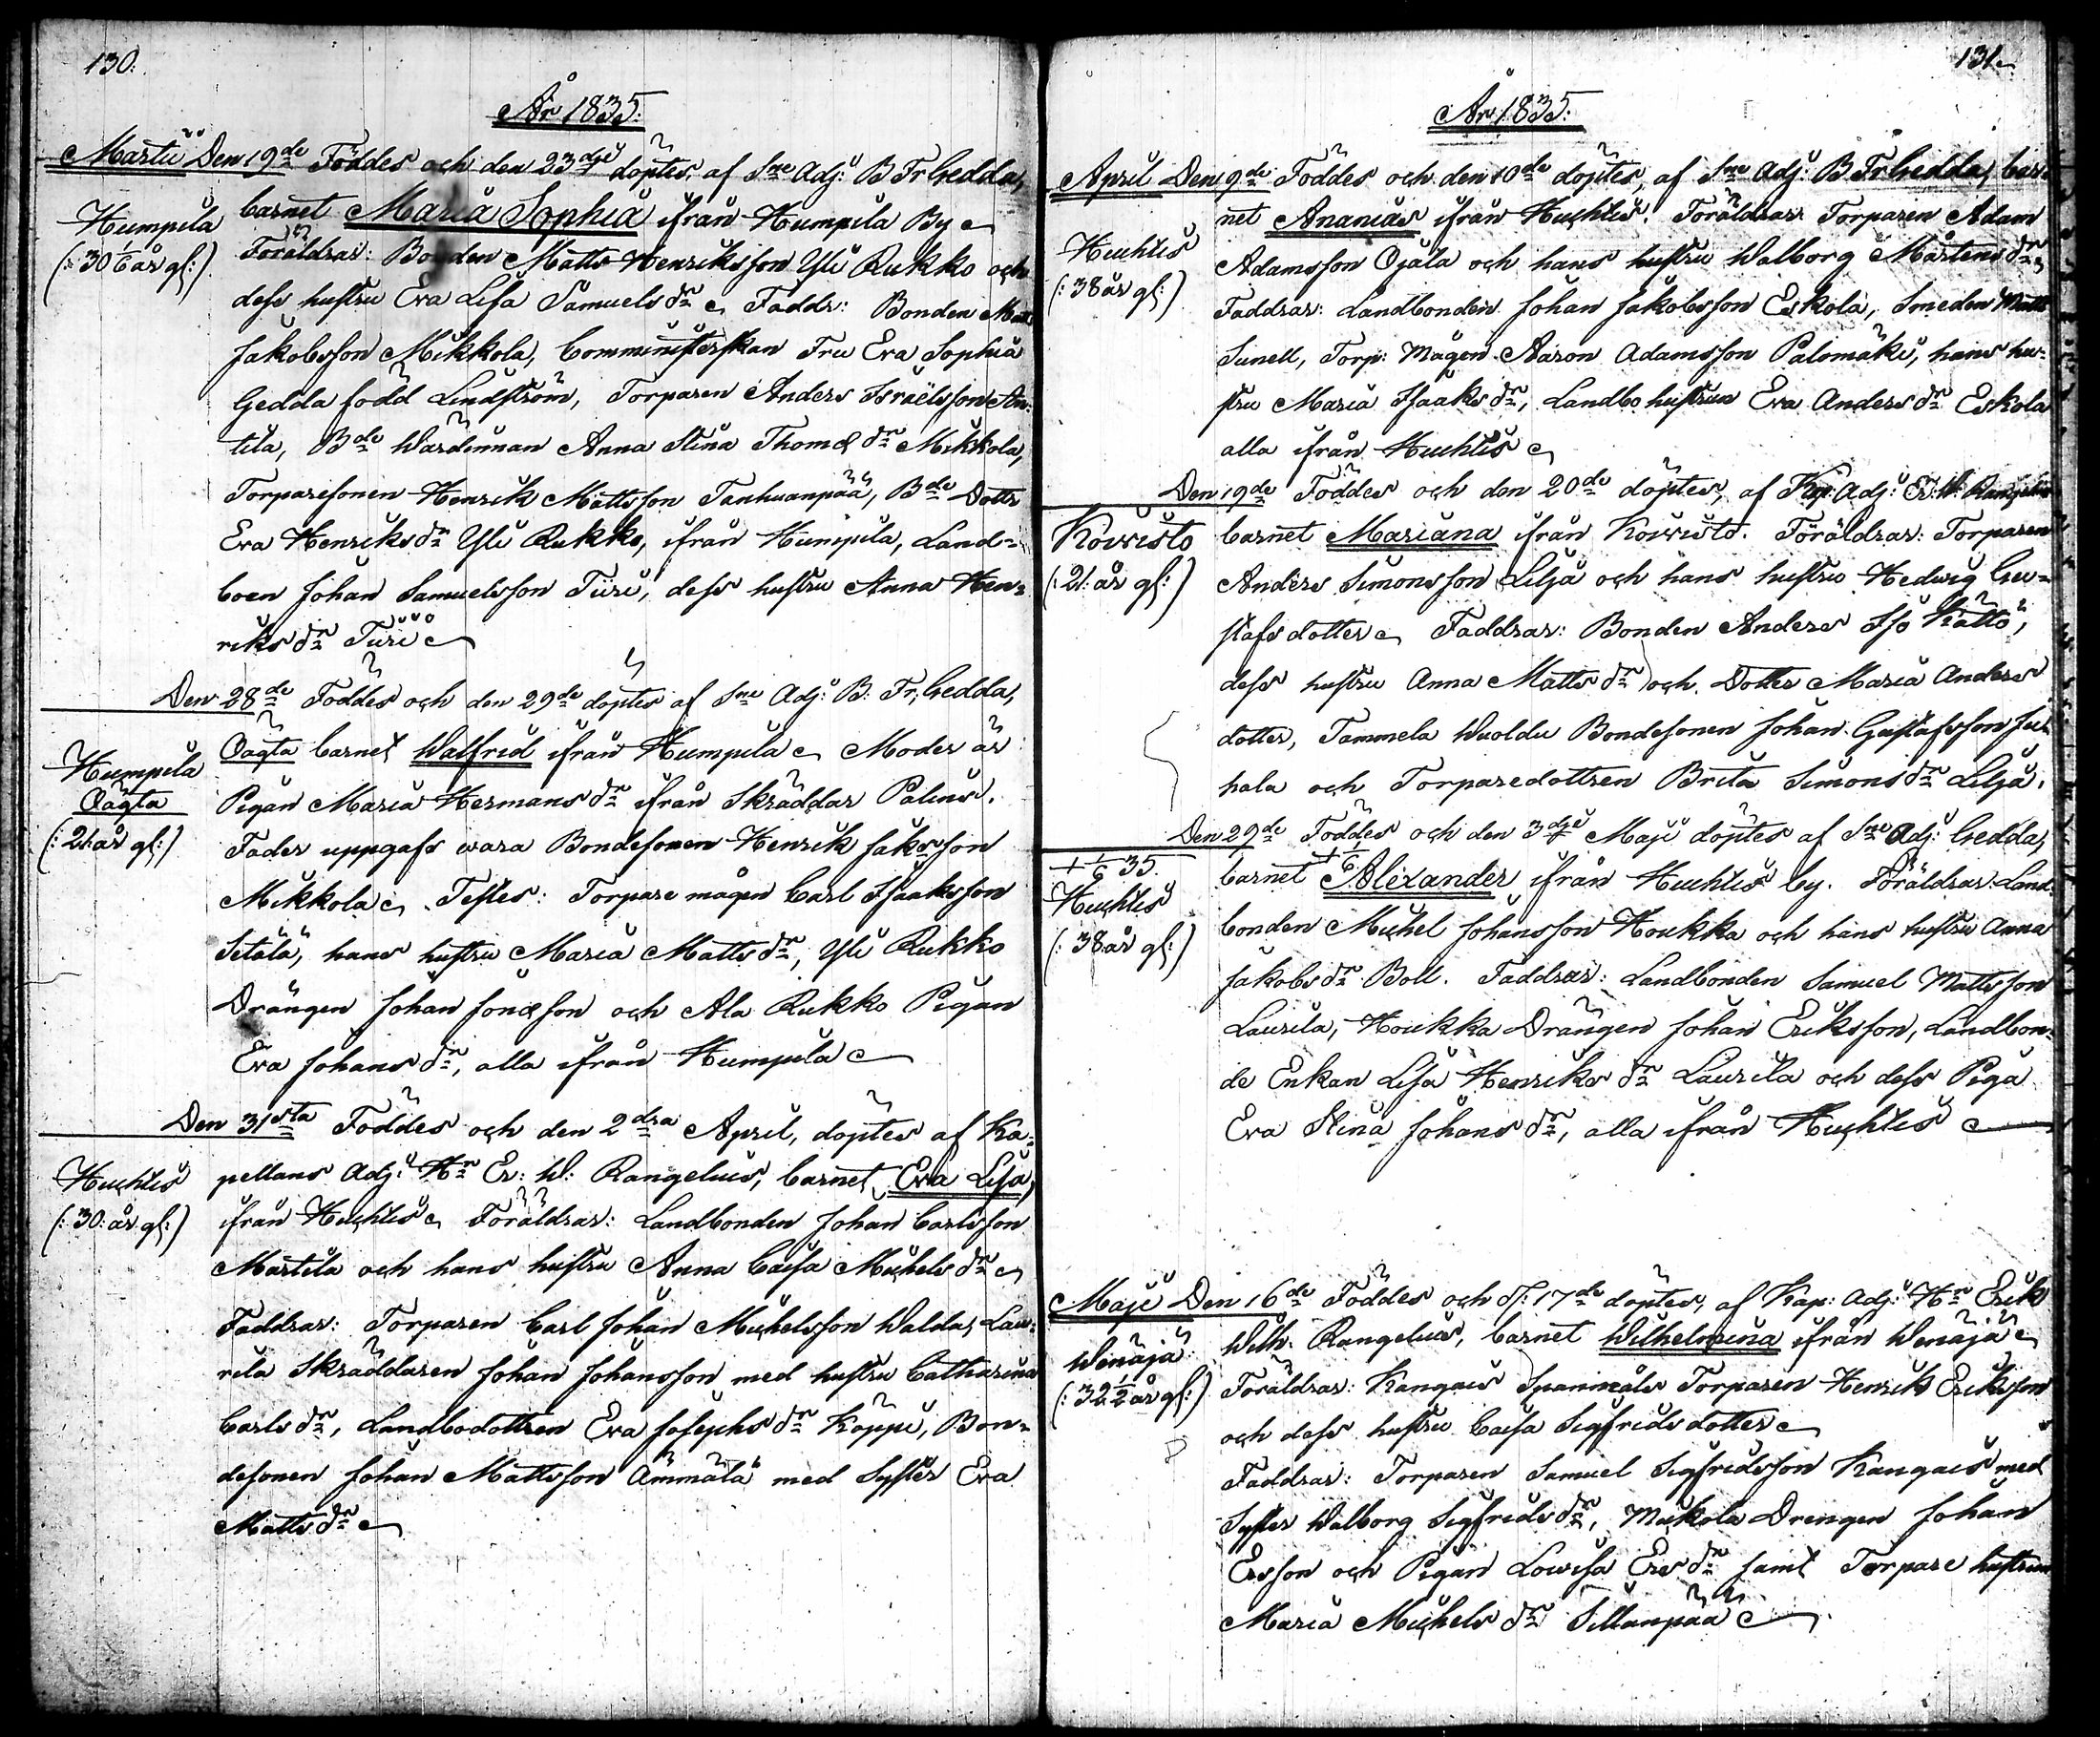 130.
År 1835.
Martii Den 19de Föddes och den 23dje döptes, af Sne Adj: B Fr Gedda,
Humpila
(: 30 1/6 år gl:)
barnet Maria Sophia ifrån Humpila By
Föräldrar: Bonden Matts Henriksson Yli Rukko och
dess hustru Eva Lisa Samuels dr Faddr: Bonden Matts
Jakobsson Mikkola, Comministerskan Fru Eva Sophia
Gedda född Lindström, Torparen Anders Israëlsson An-
tila, Bde Wärdinnan Anna Stina Thomæ dr Mikkola,
Torparesonen Henrik Mattsson Tanhuanpää, Bde Dottr
Eva Henriks dr Yli Rukko, ifrån Humpila, Land-
boen Johan Samuelsson Tiiri, dess hustru Anna Hen-
riks dr Tiiri
Den 28de Föddes och den 29de döptes af Sne Adj: B: Fr: Gedda,
Humpila
Oägta
(: 21: år gl:)
Oägta barnet Walfrid ifrån Humpila Moder är
Pigan Maria Hermans dr ifrån Skräddar Palins.
Fader uppgafs wara Bondesonen Henrik Jaksson
Mikkola Testes: Torpare mågen Carl Isaaksson
Setälä, hans hustru Maria Matts dr, Yli Rukko
Drängen Johan Jonæson och Ala Rukko Pigan
Eva Johans dr, alla ifrån Humpila
Den 31sta Föddes och den 2dra April, döptes af Ka-
Huchtis
(: 30: år gl:)
pellans Adj: Hr Er: W: Rangelius, barnet Eva Lisa,
ifrån Huchtis Föräldrar: Landbonden Johan Carlsson
Marttila och hans hustru Anna Caisa Michels dr
Faddrar: Torparen Carl Johan Michelsson Waldar, Lau-
rila Skräddaren Johan Johansson med hustru Catharina
Carls dr, Landbodottren Eva Josephs dr Köppi, Bon-
desonen Johan Mattsson Ämmälä med Syster Eva
Matts dr
131.
År 1835.
April Den 9de Föddes och den 10de döptes, af Sne Adj: B Fr Gedda, bar-
Huchtis
(: 38 år gl:)
net Ananias ifrån Huchtis. Föräldrar Torparen Adam
Adamsson Ojala och hans hustru Walborg Mårtens dr
Faddrar: Landbonden Johan Jakobsson Eskola, Smeden Matts
Sunell, Torp: Mågen Aaron Adamsson Palomäki, hans hu-
stru Maria Isaaks dr, Landbo hustrun Eva Anders dr Eskola
alla ifrån Huchtis
Den 19de Föddes och den 20de döptes, af Kap: Adj: Er: W: Rangelius
Koiwisto
(: 21: år gl:)
barnet Mariana ifrån Koiwisto. Föräldrar: Torparen
Anders Simonsson Lilja och hans hustru Hedwig Gu-
stafs dotter Faddrar: Bonden Anders Iso Kättö,
dess hustru Anna Matts dr och Dotter Maria Anders
dotter, Tammela Bondesonen Johan Gustafsson
hala och Torparedottren Brita Simons dr Lilja.
Den 29de Föddes och den 3dje Maji döptes af Sne Adj: Gedda,
+ 1/6 35.
Huchtis
(: 38 år gl:)
barnet Alexander ifrån Huchtis by. Föräldrar: Land-
bonden Michel Johansson Houkka och hans hustru Anna
Jakobs dr Boll. Faddrar: Landbonden Samuel Mattsson
Laurila, Houkka Drängen Johan Eriksson, Landbon-
de Enkan Lisa Henriks dr Laurila och dess Piga
Eva Stina Johans dr, alla ifrån Huchtis
Maji Den 16de Föddes och d: 17de döptes, af Kap: Adj: Hr Erik
Wenäjä
(: 32 1/2 år gl:)
Wilh: Rangelius, barnet Wilhelmina ifrån Wenäjä
Föräldrar: Kangais Spanmåls Torparen Henrik Eriksson
och dess hustru Caisa Sigfrids dotter
Faddrar: Torparen Samuel Sigfridsson Kangais med
Syster Walborg Sigfrids dr, Mäkola Drengen Johan
Ersson och Pigan Lowisa Ers dr samt Torpare hustrun
Maria Michels dr Sillanpää